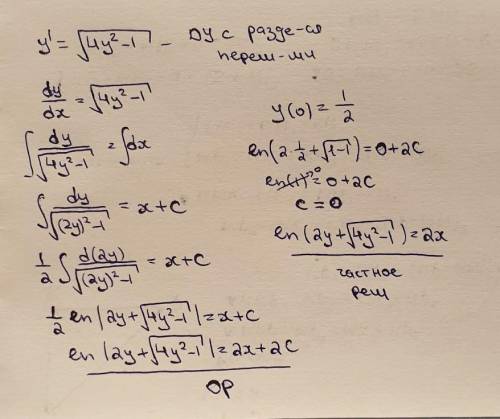 y' = √(4y²-1) - ДУ с разде-ся
перем-ми
dy/dx = √(4y²-1)
∫ dy/√(4y²-1) = ∫dx
∫ dy/√((2y)²-1) = x+C
1/2 ∫ d(2y)/√((2y)²-1) = x+C
1/2 ln|2y+√(4y²-1)| = x+C
ln|2y+√(4y²-1)| = 2x+2C
ОР
y(0) = 1/2
ln(2·1/2+√(1-1)) = 0+2C
ln(1) = 0+2C
C = 0
ln(2y+√(4y²-1)) = 2x
частное
реш